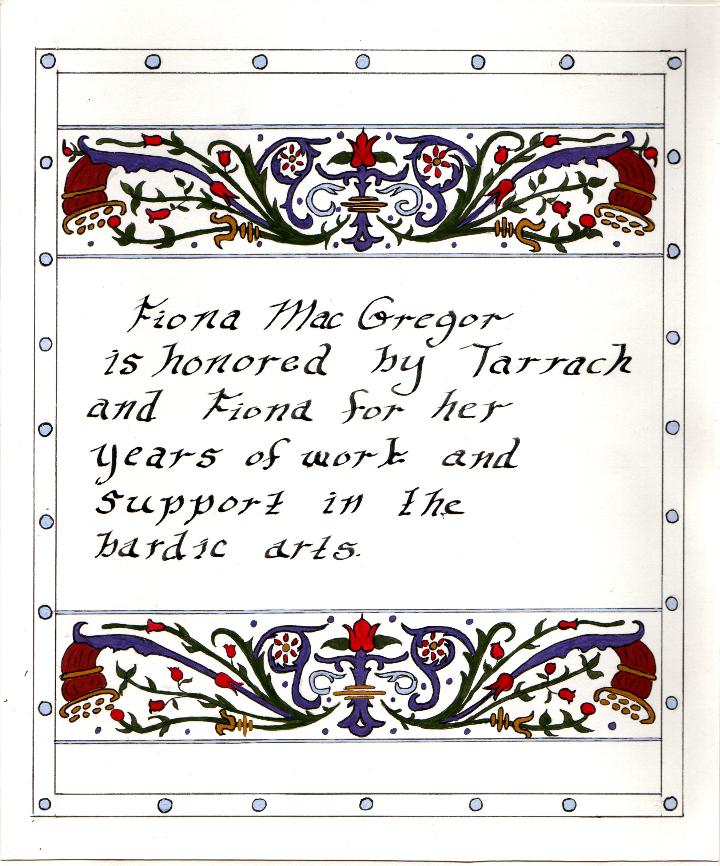 Fiona Mac Gregor
is honored by Tarrach
and Fiona for her
years of work and
support in the
bardic arts.